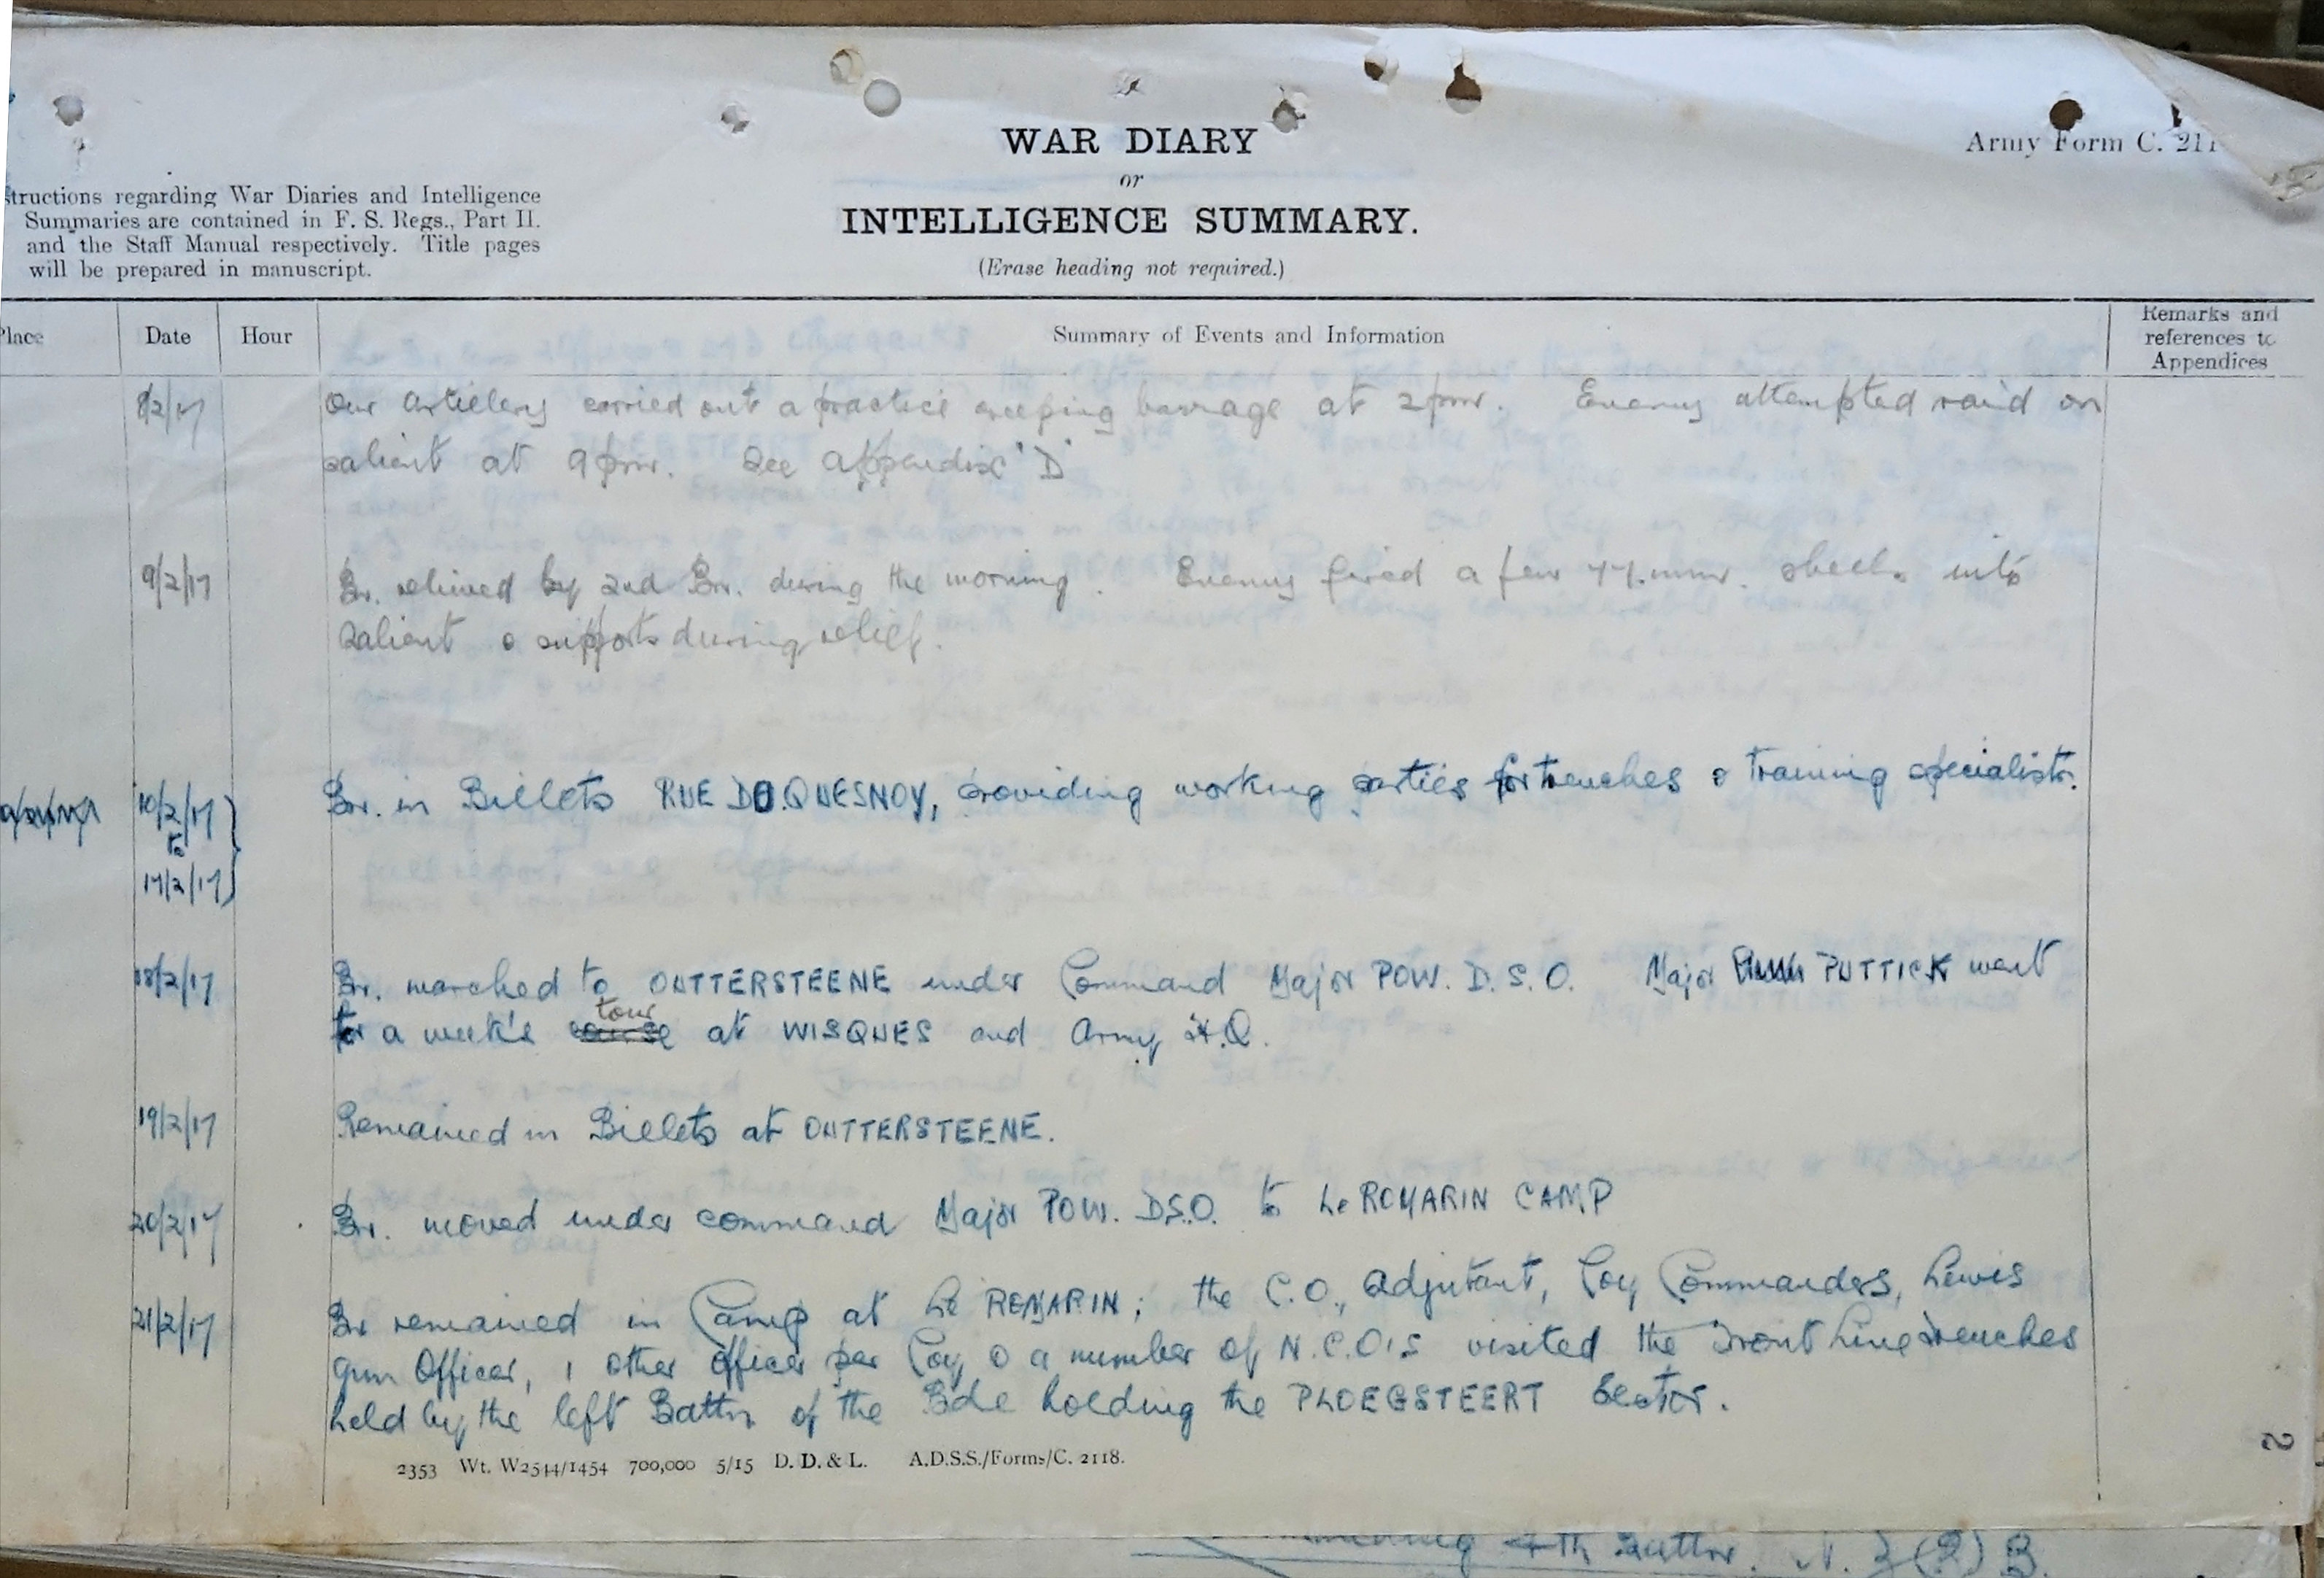 WAR DIARY
or
INTELLIGENCE SUMMARY.
(Erase heading not required.)
Army Form C. 211
structions regarding War Diaries and Intelligence
Summaries are contained in F. S. Regs., Part II.
and the Staff Manual respectively. Title pages
will be prepared in manuscript.
Place Date Hour Summary of Events and Information Remarks and
references to
Appendices
8/2/17 Our artillery carried out a practice creeping barrage at 2pm. Enemy attempted raid on
salient at 9pm. See Appendix 'D'
9/2/17 Bn. relieved by 2nd Bn. during the morning. Enemy fired a few 77.mm. shells into
Salient & supports during relief.
10/2/17 Bn. in Billets RUE DU QUESNOY, providing working parties for trenches & training specialists.
to
17/2/17
18/2/17 Bn. marched to OUTTERSTEENE under Command Major POW. D.S.O. Major PUTTICK went
tour
for a week's course at WISQUES and Army H.Q.
19/2/17 Remained in Billets at OUTTERSTEENE.
20/2/17 Bn. moved under command Major POW. DSO. to Le ROMARIN CAMP
21/2/17 Bn remained in Camp at Le ROMARIN; the C.O., Adjutant, Coy Commanders, Lewis
Gun Officer, 1 other officer per Coy & a number of N.C.O's visited the Front Line trenches
held by the left Battn of the Bde holding the PLOEGSTEERT Sector.
2353 Wt. W2544/1454 700,000 5/15 D. D. & L. A.D.S.S./Forms/C. 2118.
2
4th Battn. N.Z(R)B.